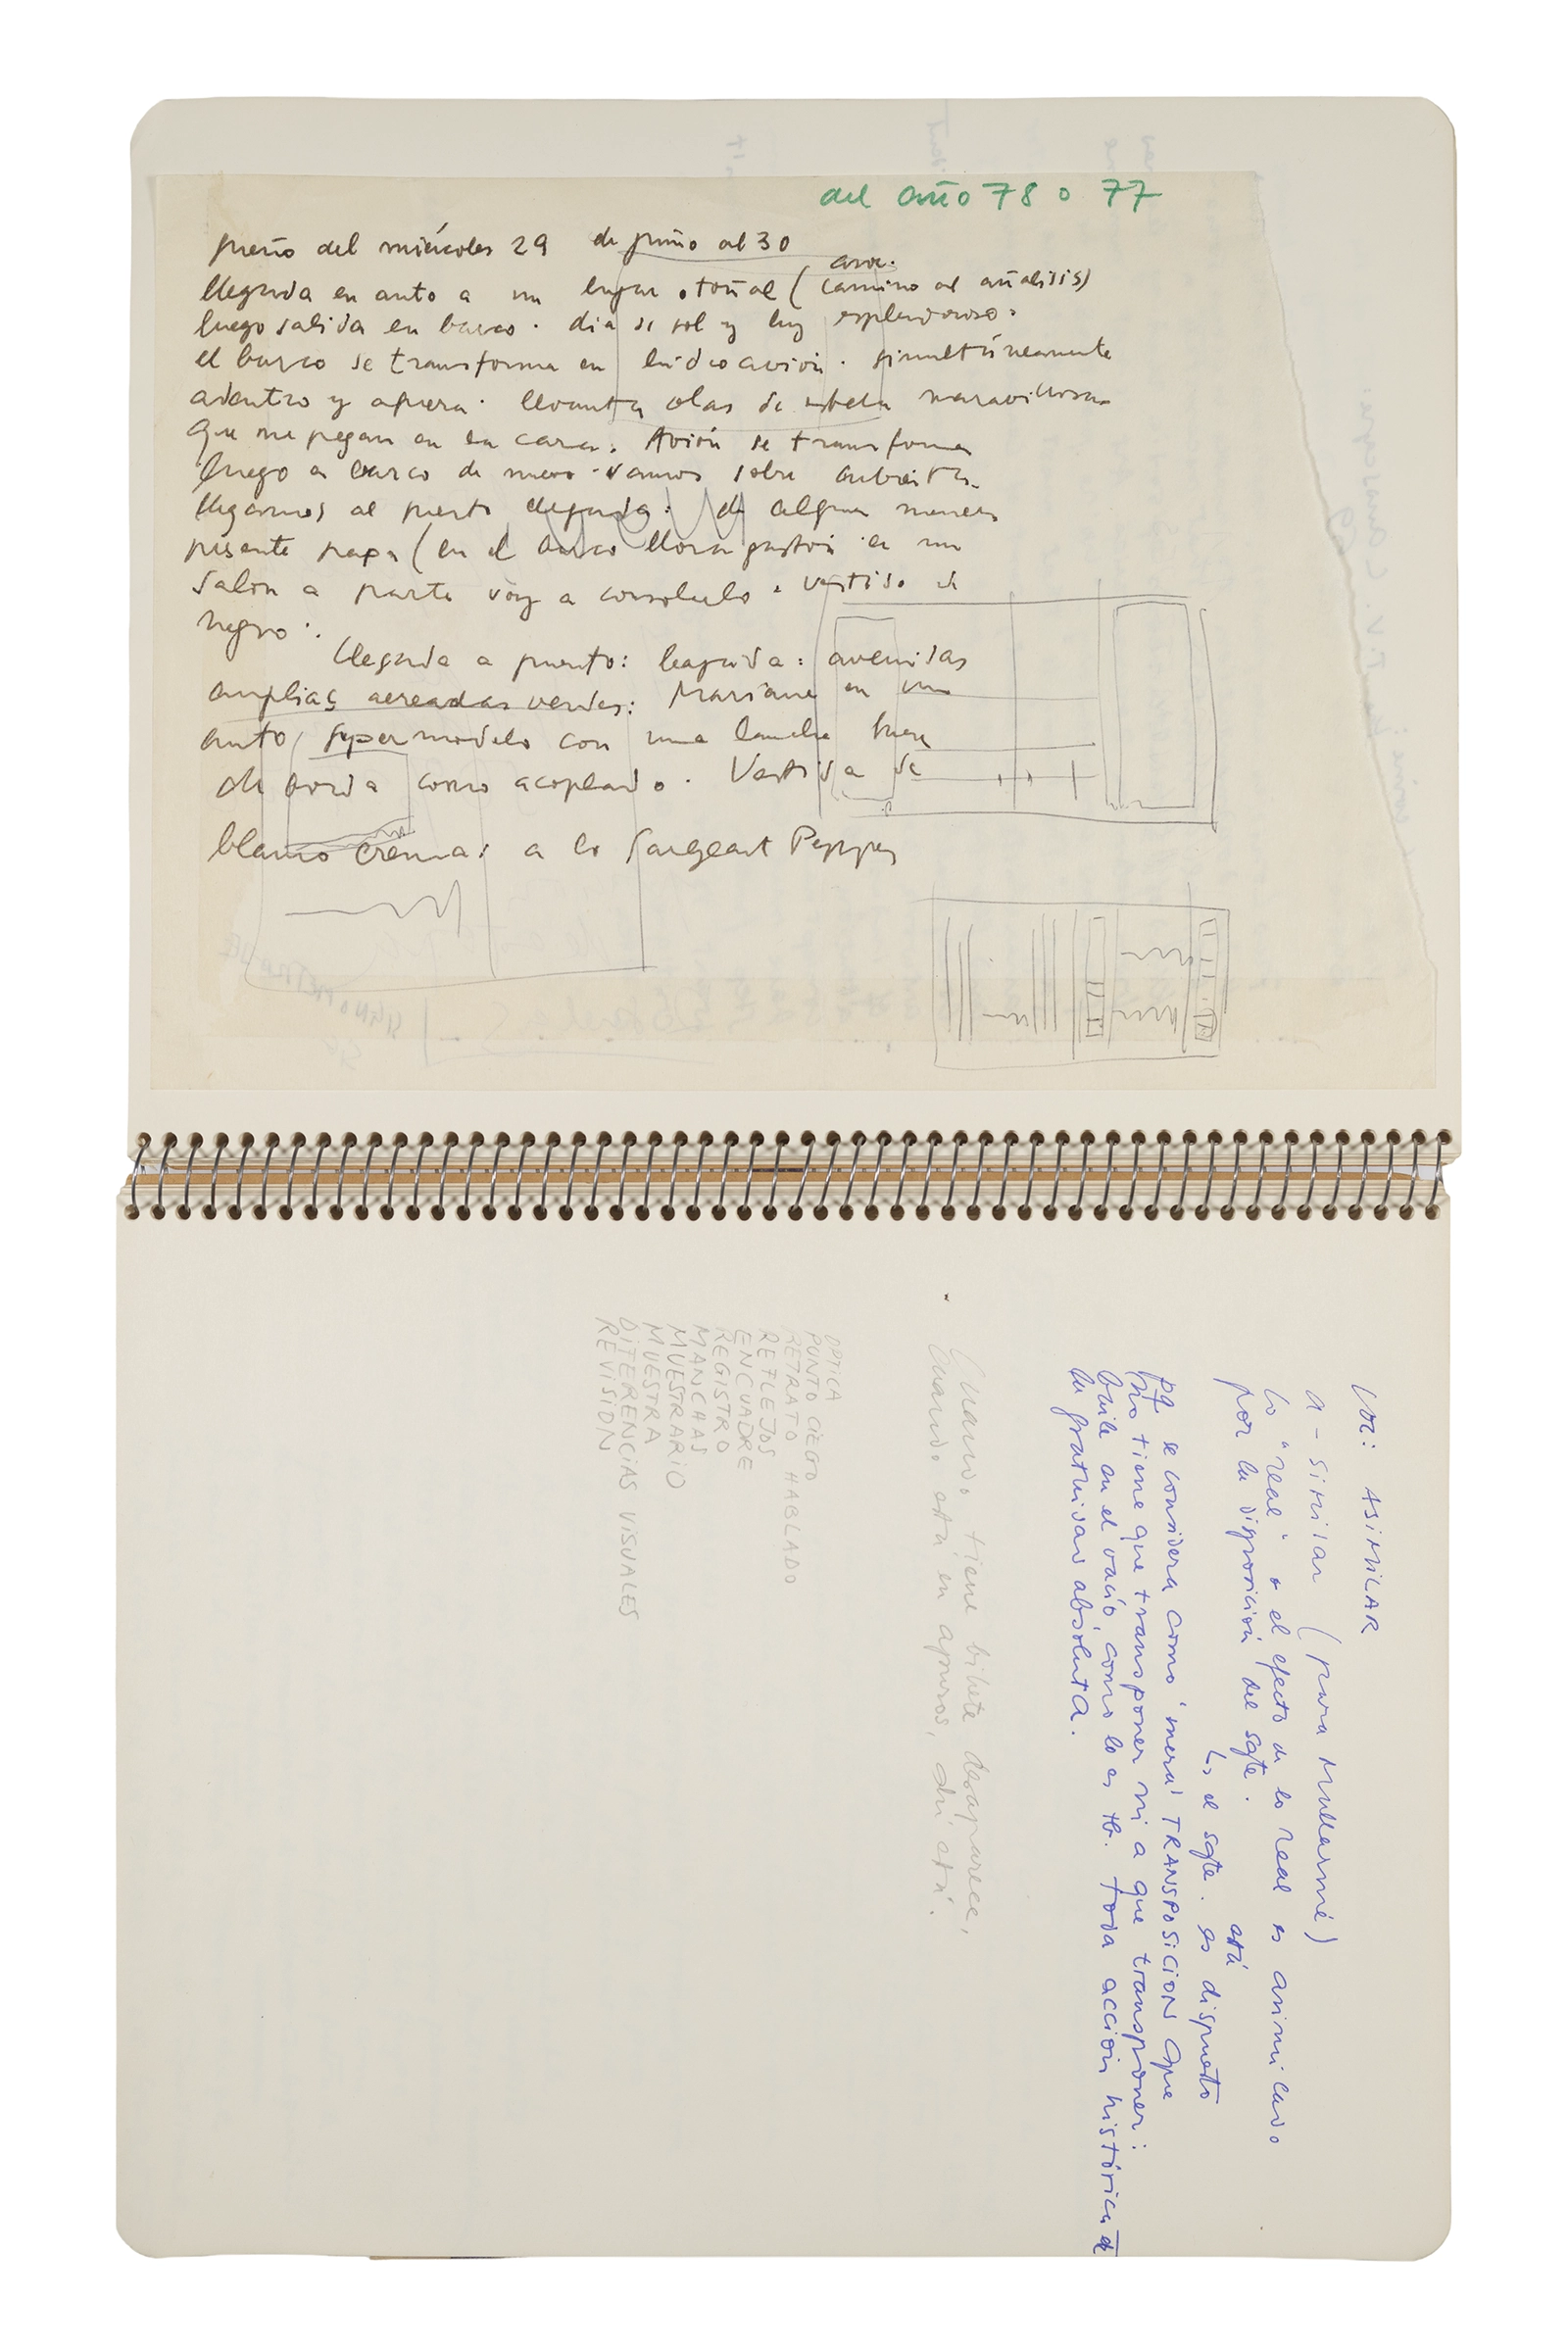 del año 78 o 77
sueño del miércoles 29 de junio al 30
asoc.
llegada en auto a un lugar otoñal (camino al análisis)
luego salida en barco. dia de sol y luz esplendoroso.
el barco se transforma en hidroavión. simultáneamente
adentro y afuera. levanta olas de estela maravillosa
que me pegan en la cara. Avión se transforma
luego en barco de nuevo. vamos sobre cubierta.
llegamos al puerto de alguna manera
presente papa (en el barco llora gastón en un
salón a parte voy a consolarlo. vestido de
negro.
llegada a puerto: avenidas
amplias aereadas verdes: Mariana en un
auto super modelo con una lancha fuera
de borda como acoplado. Vestida de
blanco crema: a lo Sargeant Pepper
Voz: ASIMILAR
A-SIMILAR (para Mallarmé)
lo "real" o el efecto de lo real es asimilado
por la disposición del sgte.
está
Ls el sgte. es dispuesto
pq se considera como 'mera' TRANSPOSICION que
no tiene que transponer ni a que transponer:
baila en el vacío, como lo es tb. toda acción histórica de
la gratuidad absoluta.
Cuando tiene billete desaparece,
cuando está en apuros, ahí está.
OPTICA
PUNTO CIEGO
RETRATO HABLADO
REFLEJOS
ENCUADRE
REGISTRO
MANCHAS
MUESTRARIO
MUESTRA
DIFERENCIAS VISUALES
REVISION